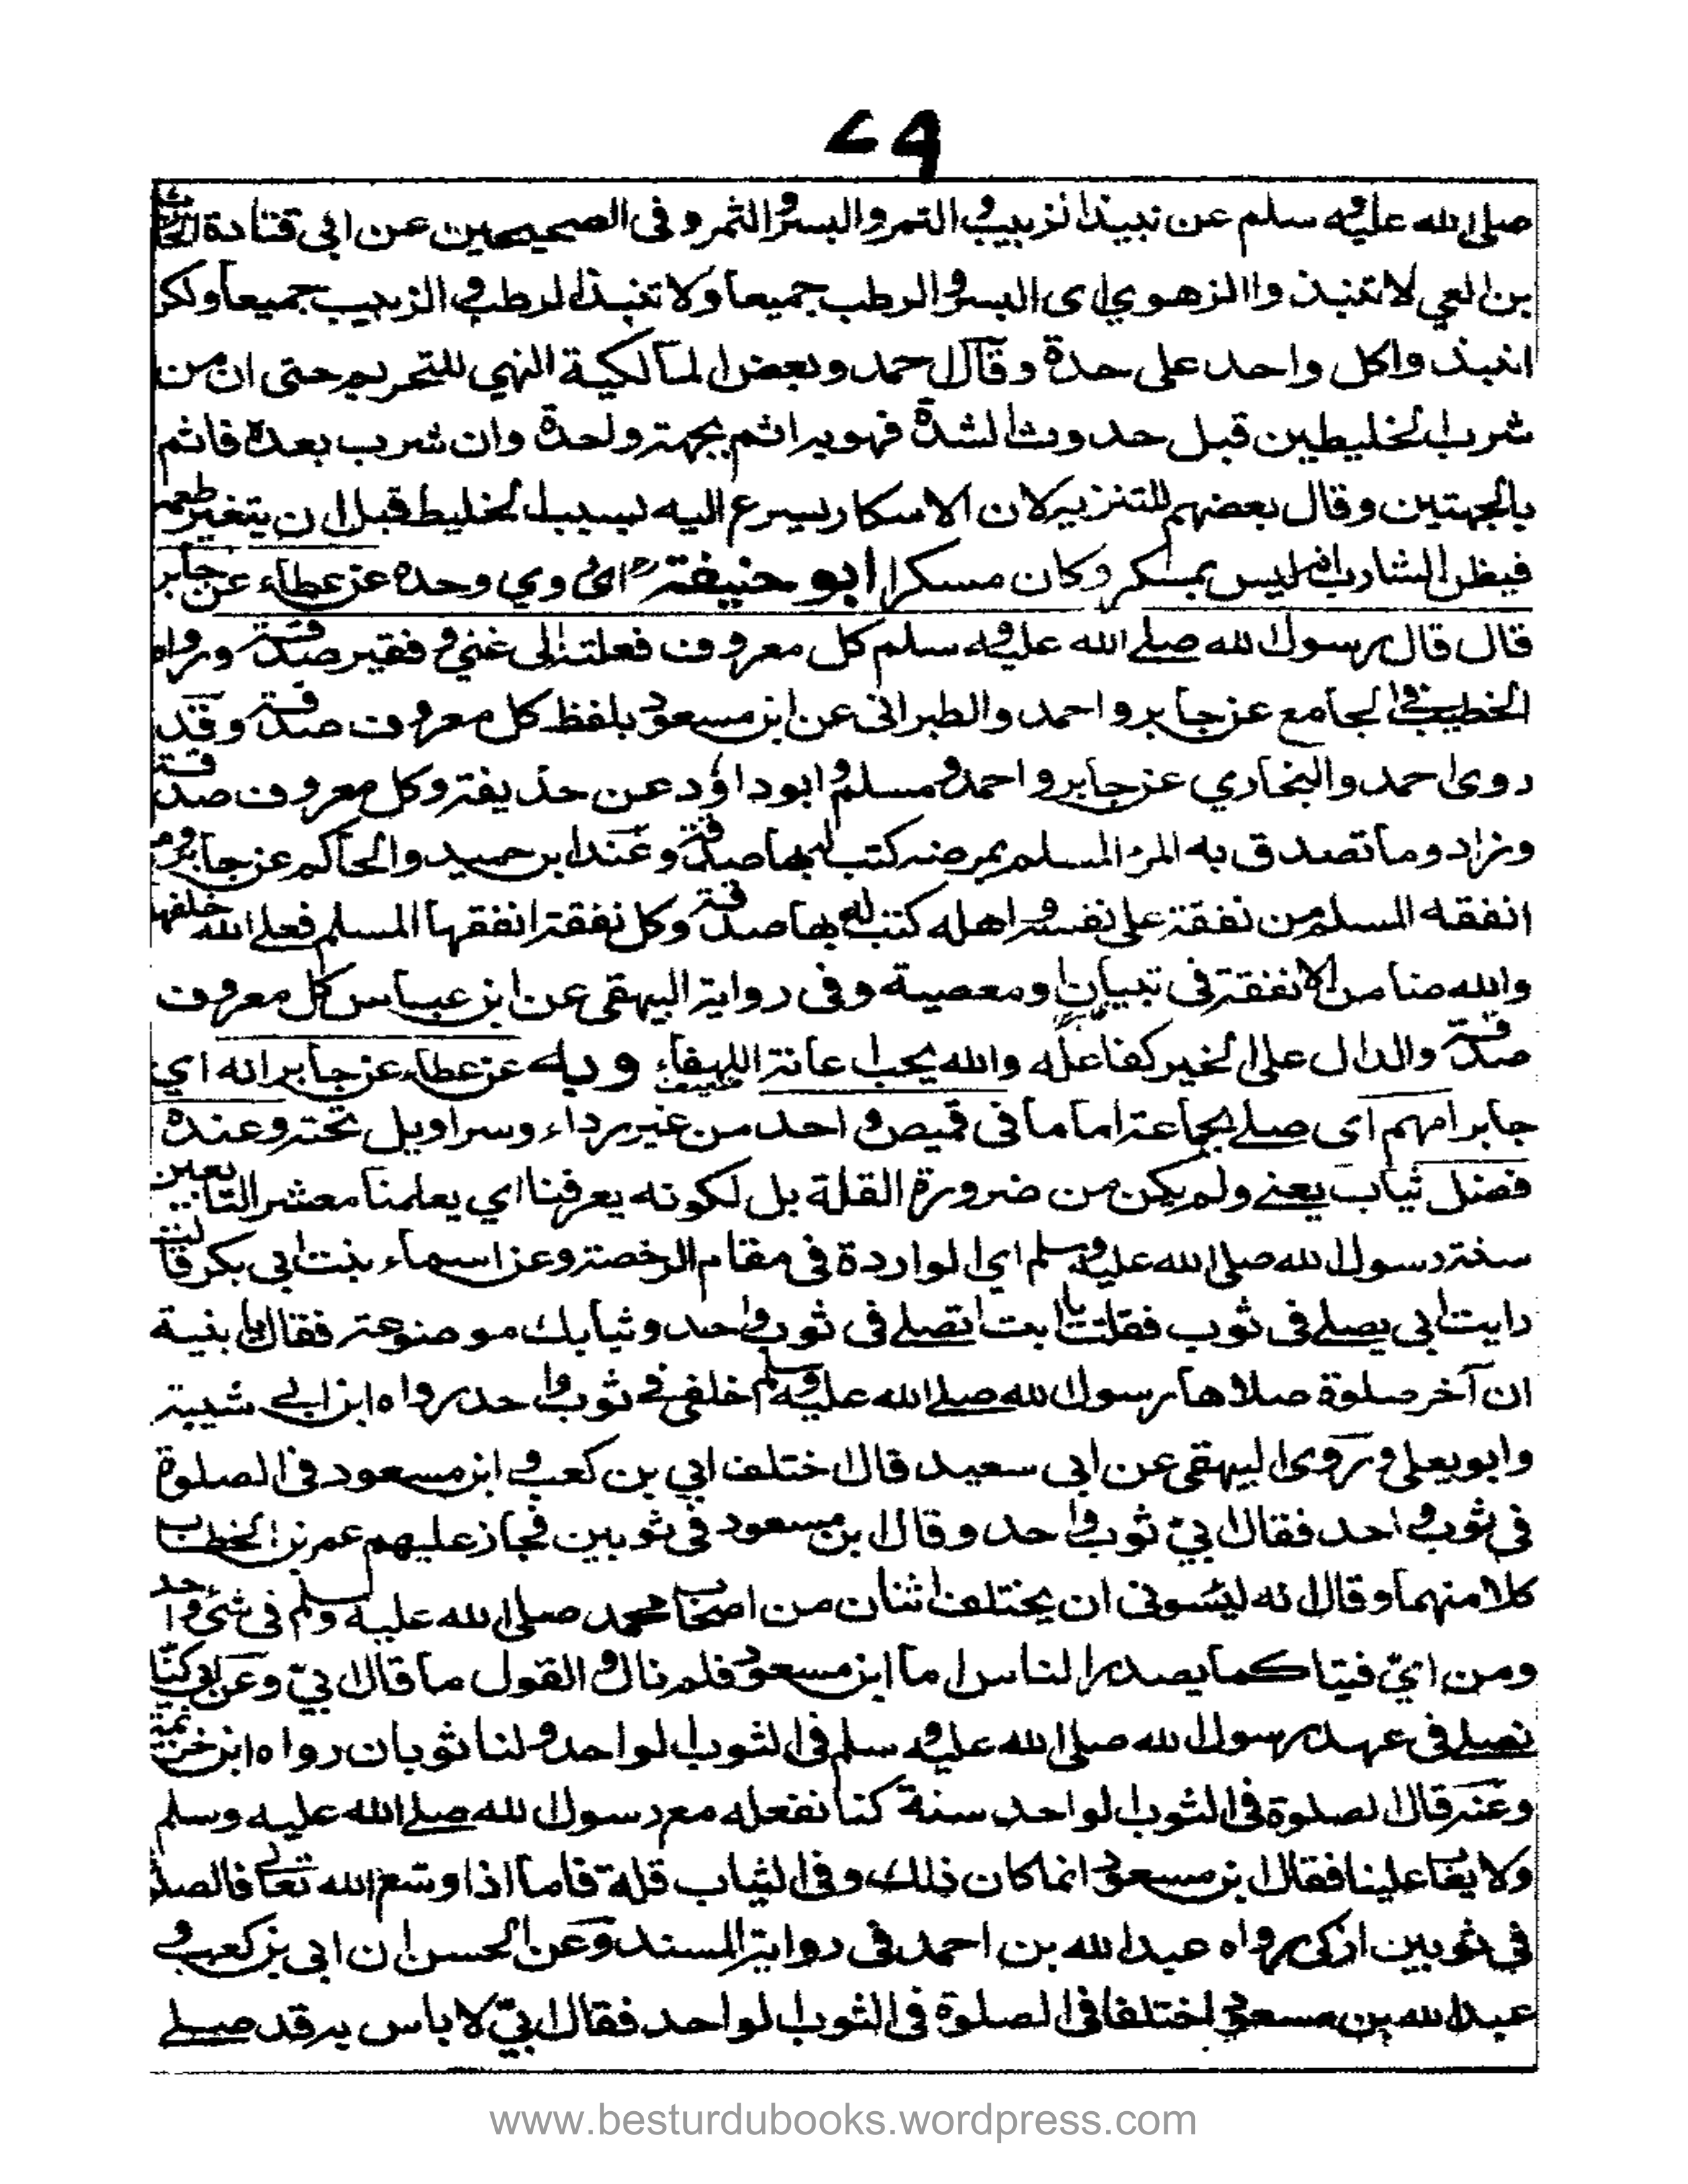 ۷۹
صلى الله عليه وسلم عن نبيذ الزبيب والتمر والبسر والتمر وفى الصحيحين عن ابى قتادة
بن لعي لا تنبذوا الزهو اي اى البسر والرطب جميعا ولا تنبذ الرطب والزبيب جميعا ولكن
انبذوا كل واحد على حدة وقال احمد وبعض المالكية النهي للتحريم حتى ان من
شرب الخليطين قبل حدوث الشدة فهو يراثم بجهة واحدة وان شرب بعدة فاثم
بالجهتين وقال بعضهم للتنزيه لان الاسكار يسرع اليه بسبب الخليط قبل ان يتغير طعمه
فيظن الشارب انه ليس بمسكر وكان مسكرا ابو حنيفة اى روي وحده عن عطاء عن جابر
قال قال رسول الله صلے الله عليه وسلم كل معروف فعلته الى غني وفقير صدقة ورواه
الخطيب فى الجامع عن جابر واحمد والطبرانى عن ابن مسعود بلفظ كل معروف صدقة وقد
روى احمد والبخاري عن جابر واحمد ومسلم وابو داؤد عن حذيفة وكل معروف صدقة
وزاد وما تصدق به المرء المسلم عرضه كتب له بها صدقة وعند ابن حميد والحاكم عن جابر وما
انفقه المسلم من نفقة على نفسه واهله كتب له بها صدقة وكل نفقة انفقها المسلم فعلى الله خلفها
والله ضامن الا نفقة فى بنيان او معصية وفى رواية البيهقى عن ابن عباس كل معروف
صدقة والدال على الخير كفاعله والله يحب اغاثة اللهفاء وبه عن عطاء عن جابر انه اي
جابر امهم اى صلے بجماعة اماما فى قميص واحد من غير رداء وسراويل تحته وعنده
فضل ثياب يعنے ولم يكن من ضرورة القلة بل لكونه يعرفنا اي يعلمنا معشر التابعين
سنة رسول الله صلى الله عليه وسلم اي الواردة فى مقام الرخصة وعن اسماء بنت ابى بكر قالت
رايت ابى يصلے فى ثوب فقلت يا ابت اتصلے فى ثوب واحد وثيابك موضوعة فقال يا بنية
ان آخر صلوة صلاها رسول الله صلے الله عليه وسلم خلفى فى ثوب واحد رواه ابن ابے شيبة
وابو يعلى وروى البيهقى عن ابى سعيد قال اختلف ابي بن كعب وابن مسعود فى الصلوة
فى ثوب واحد فقال ابيّ ثوب واحد وقال ابن مسعود فى ثوبين فجاز عليهم عمر بن الخطاب
كلا منهما وقال انه ليسونى ان يختلف اثنان من اصحاب محمد صلى الله عليه وسلم فى شئ واحد
ومن ايّ فتيا كما يصدر الناس اما ابن مسعود فلم نال والقول ما قال ابيّ وعن ابي كنا
نصلے فى عهد رسول الله صلى الله عليه وسلم فى الثوب الواحد ولنا ثوبان رواه ابن خزيمة
وعنه قال الصلوة فى الثوب الواحد سنة كنا نفعله مع رسول الله صلے الله عليه وسلم
ولا يعاب علينا فقال ابن مسعود انما كان ذلك وفى الثياب قلة فاما اذا وسع الله تعالى فالصلوة
فى ثوبين ازكى رواه عبد الله بن احمد فى رواية المسند وعن الحسن ان ابى بن كعب و
عبد الله بن مسعود اختلفا فى الصلوة فى الثوب الواحد فقال ابيّ لا باس به قد صلے
www.besturdubooks.wordpress.com